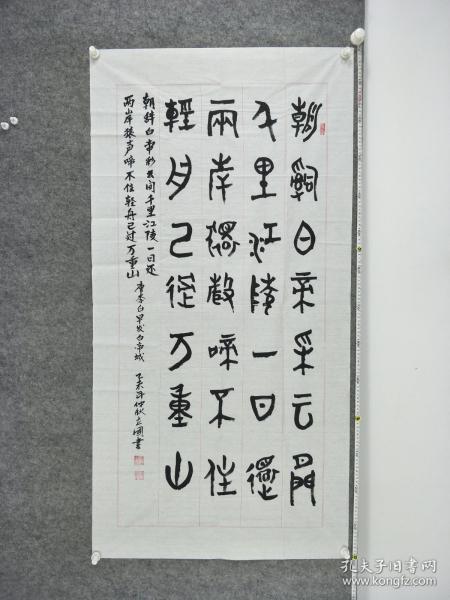 朝辤白帝采云閒
千里江陵一日還
兩岸猿聲啼不住
輕舟已徑万重山
朝辞白帝彩云间千里江陵一日还
两岸猿声啼不住轻舟已过万重山
唐李白早发白帝城 乙未年仲秋 书
孔夫子旧书网
www.kongfz.com